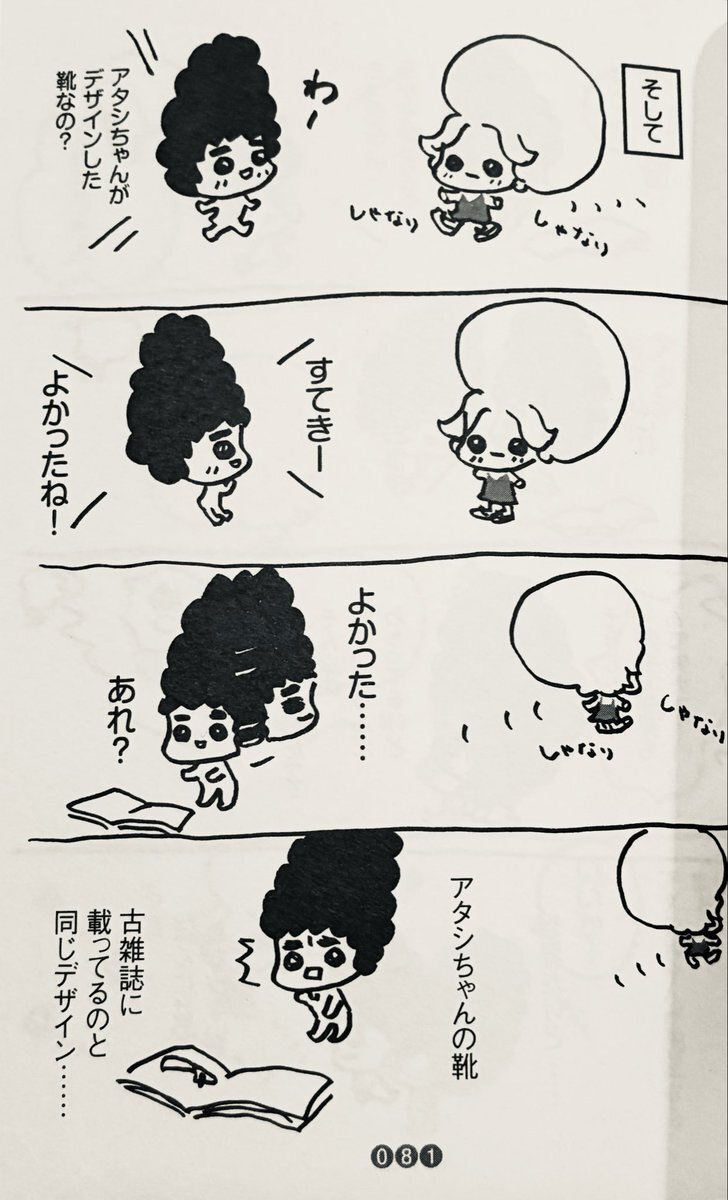 そして
しゃなり
しゃなり
わー
アタシちゃんが
デザインした
靴なの？
すてきー
よかったね！
しゃなり
しゃなり
よかった……
あれ？
アタシちゃんの靴
古雑誌に
載ってるのと
同じデザイン……
081